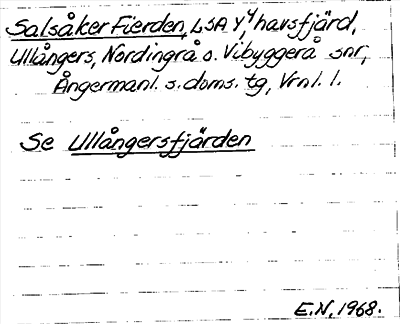 Salsåker Fierden, LSA Y4, havsfjärd,
Ullångers, Nordingrå o. Vibyggerå snr,
Ångermanl. s. doms. tg, Vrnl. l.
Se Ullångersfjärden
E.N, 1968.